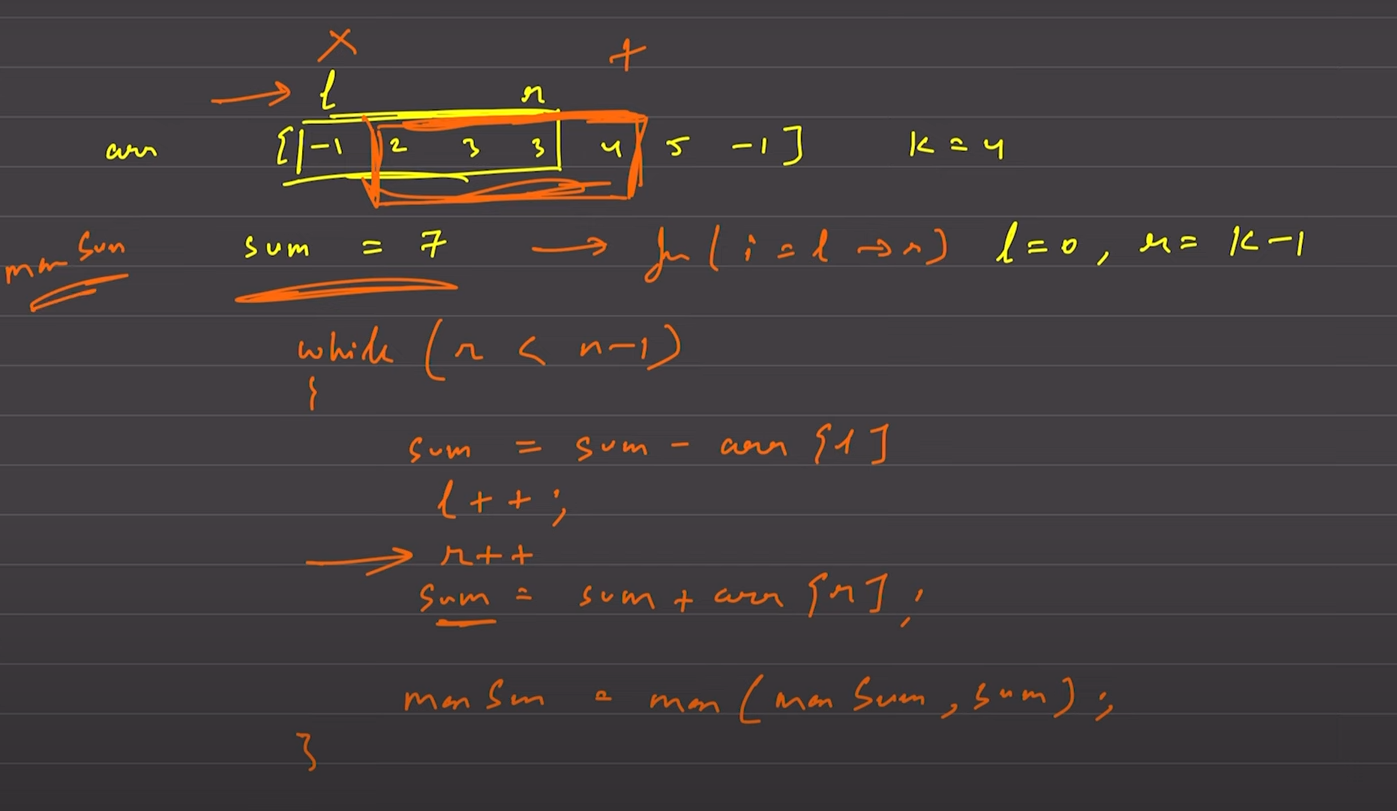 l r
arr [ -1 2 3 3 4 5 -1 ] k = 4
maxSum sum = 7 → for ( i = l → r ) l = 0 , r = k-1
while ( r < n-1 )
{
sum = sum - arr [l]
l++;
→ r++
sum = sum + arr [r] ;
maxSum = max ( maxSum , sum ) ;
}